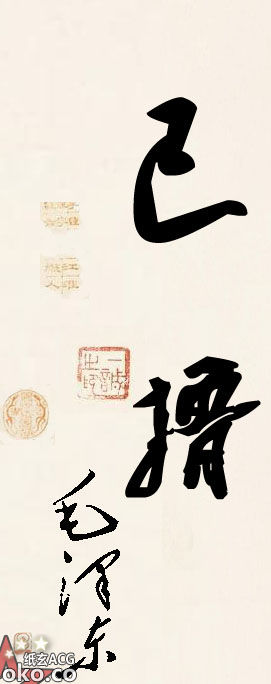 已撸
毛泽东
纸玄ACG
oko.co